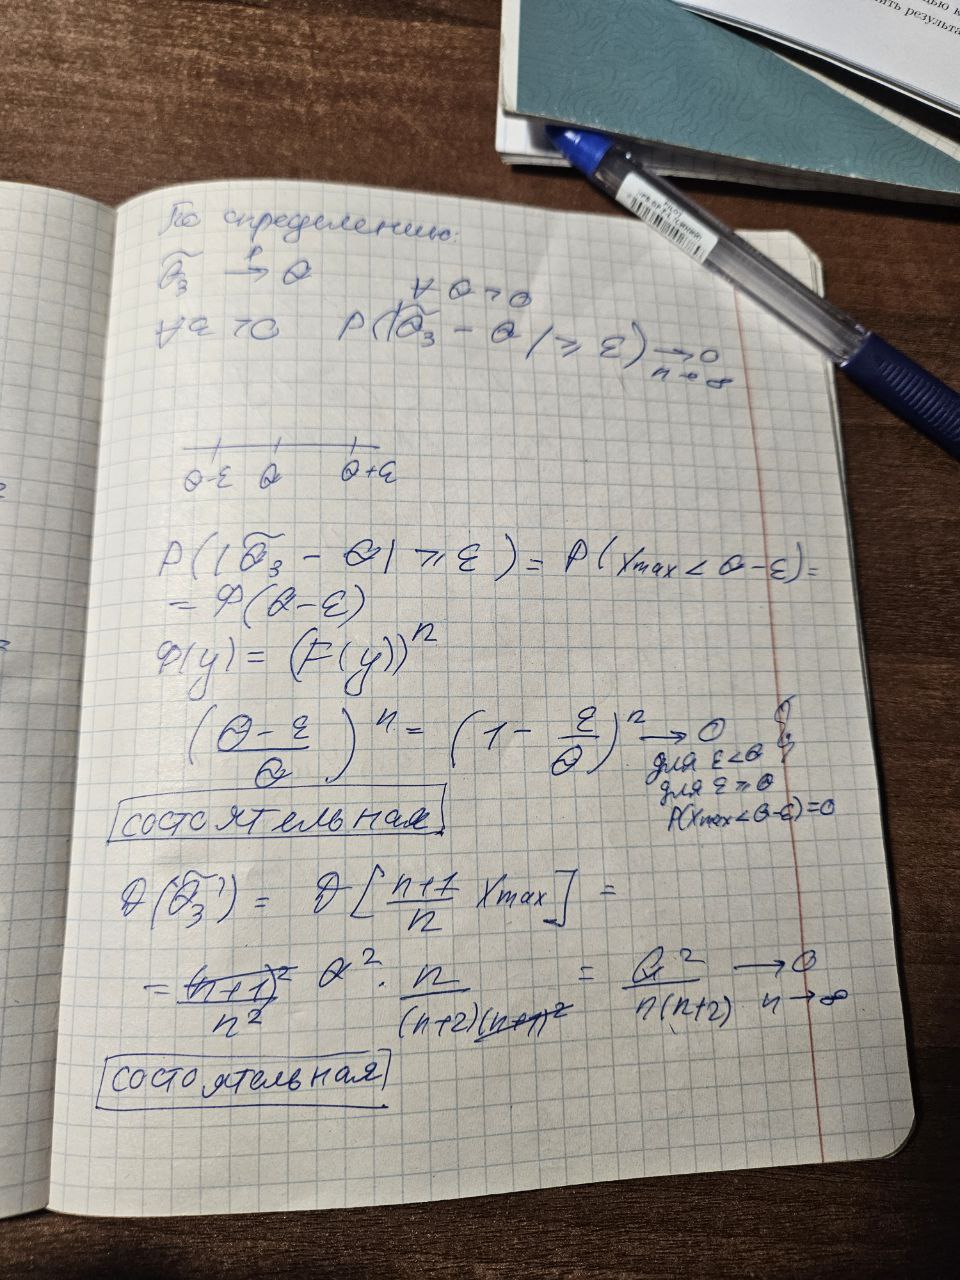 ью к
ить результа
PILOT
По определению:
θ̃₃ →ᴾ θ ∀ θ > 0
∀ε > 0 P(|θ̃₃ - θ| ≥ ε) → 0
n → ∞
θ-ε θ θ+ε
P(|θ̃₃ - θ| ≥ ε) = P(Xmax < θ-ε) =
= Φ(θ-ε)
Φ(y) = (F(y))ⁿ
((θ-ε)/θ)ⁿ = (1 - ε/θ)ⁿ → 0
для ε<θ
для ε ≥ θ
P(Xmax<θ-ε)=0
состоятельная
D(θ̃₃') = D[(n+1)/n Xmax] =
= (n+1)²/n² θ² · n/((n+2)(n+1)²) = θ²/(n(n+2)) → 0
n → ∞
состоятельная